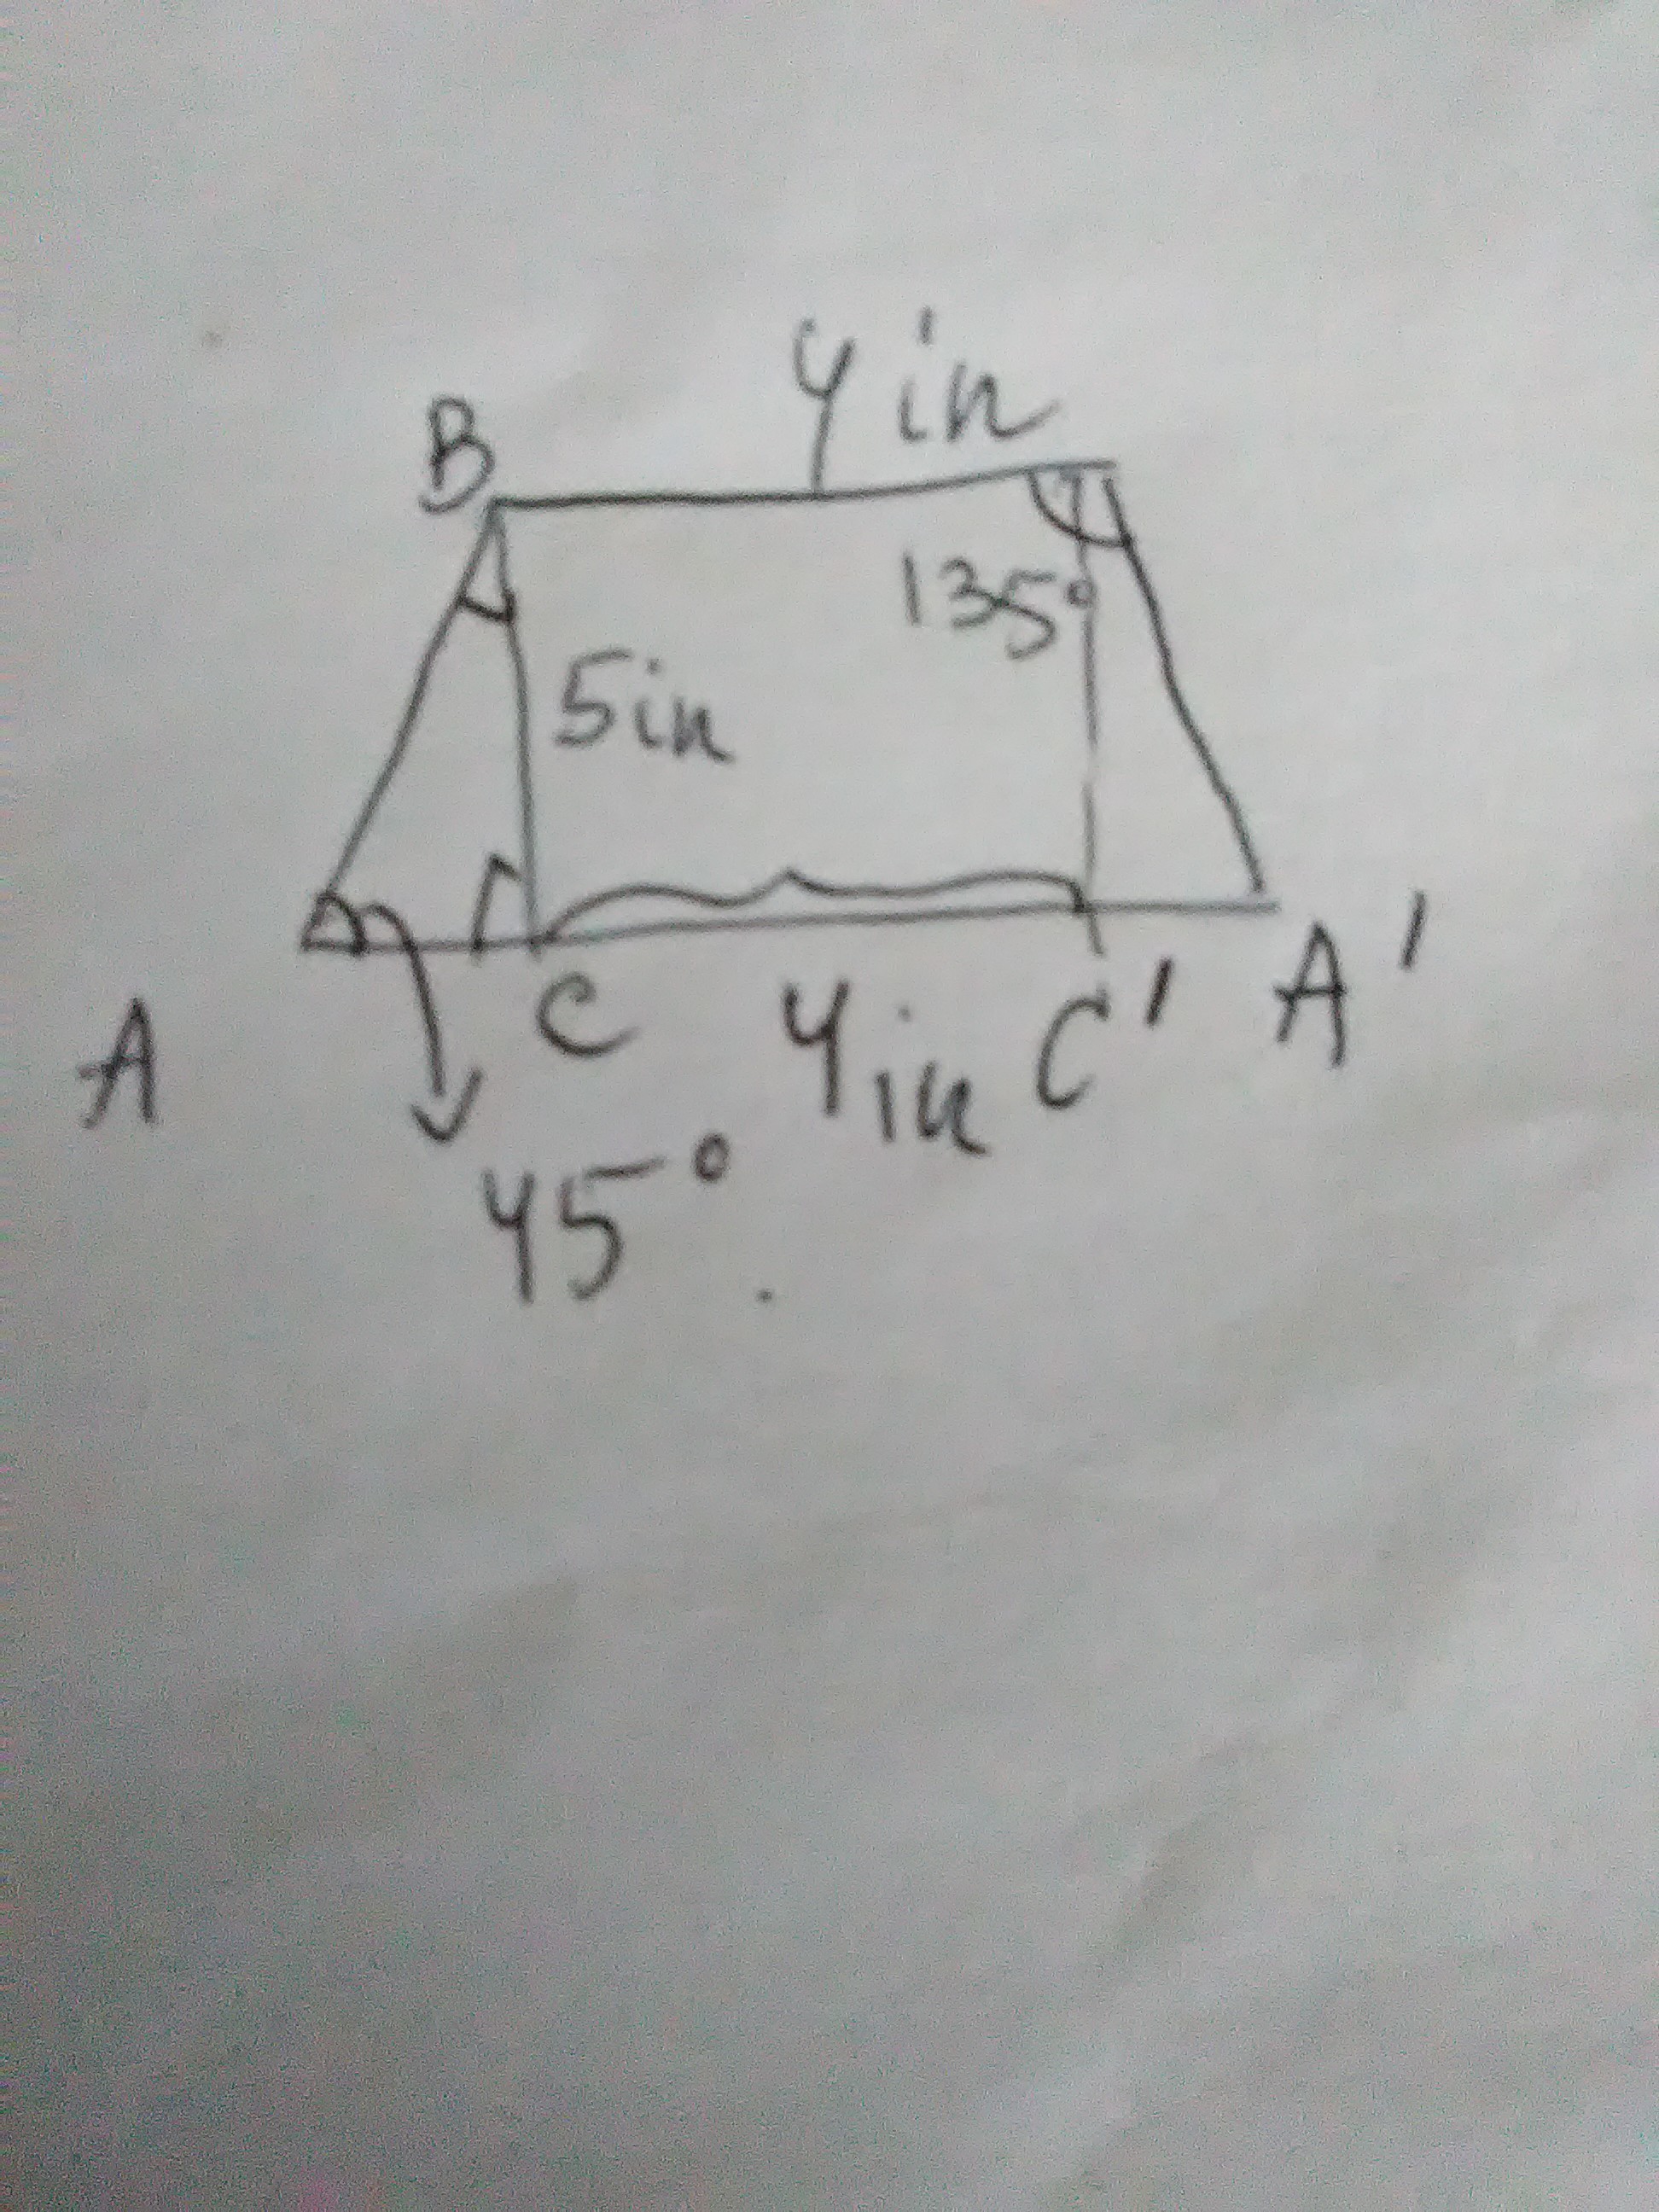 4 in
B
135°
5in
A
C
4in
C'
A'
45°